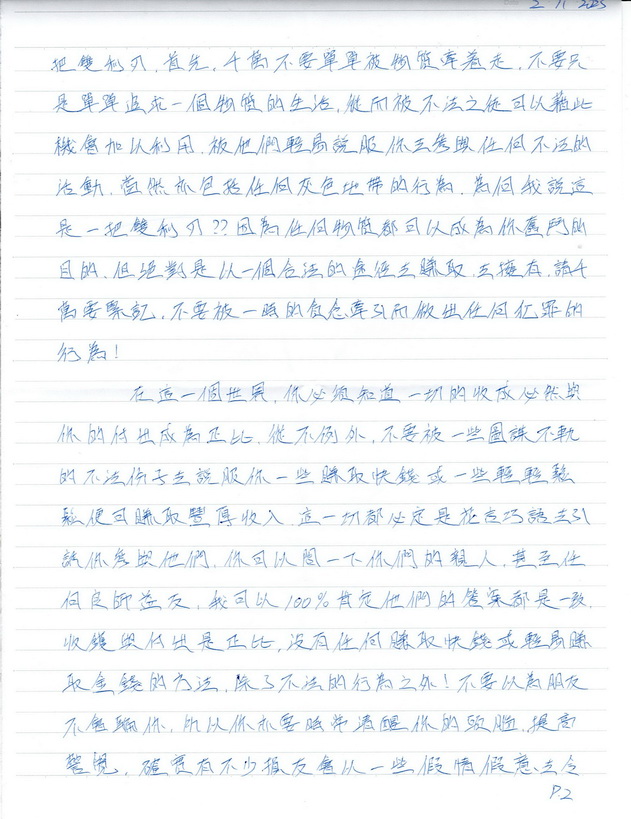 2 11 2025
把雙利刃, 首先, 千萬不要單單被物質牽着走, 不要只
是單單追求一個物質的生活, 從而被不法之徒可以藉此
機會加以利用, 被他們輕易說服你去參與任何不法的
活動, 當然亦包括任何灰色地帶的行為, 為何我說這
是一把雙利刃?? 因為任何物質都可以成為你奮鬥的
目的, 但絕對是以一個合法的途徑去賺取, 去擁有, 請千
萬要緊記, 不要被一時的貪念牽引而做出任何犯罪的
行為!
在這一個世界, 你必須知道一切的收成必然與
你的付出成為正比, 從不例外, 不要被一些圖謀不軌
的不法份子去說服你一些賺取快錢或一些輕輕鬆
鬆便可賺取豐厚收入, 這一切都必定是花言巧語去引
誘你參與他們, 你可以問一下你們的親人, 甚至任
何良師益友, 我可以100%肯定他們的答案都是一致,
收獲與付出是正比, 沒有任何賺取快錢或輕易賺
取金錢的方法, 除了不法的行為之外! 不要以為朋友
不會騙你, 所以你亦要時常清醒你的頭腦, 提高
警覺, 確實有不少損友會以一些假情假意去令
P.2